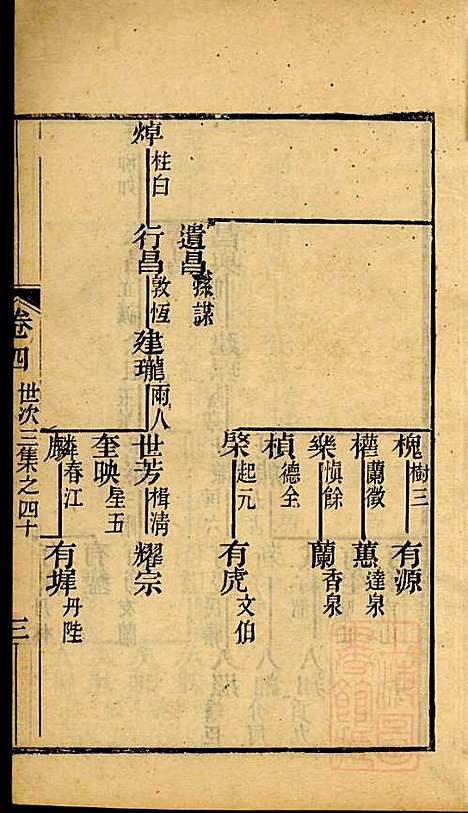 槐 樹三 有源
權 蘭徵 蕙 達泉
樂 慎餘 蘭 香泉
楨 德全
棨 起元 有虎 文伯
遺昌 孫謀
焯 桂白 行昌 敦恆 建瓏 雨人 世芳 楫淸 耀宗
奎映 星五
麟 春江 有墀 丹陛
卷四 世次三集之四十 三